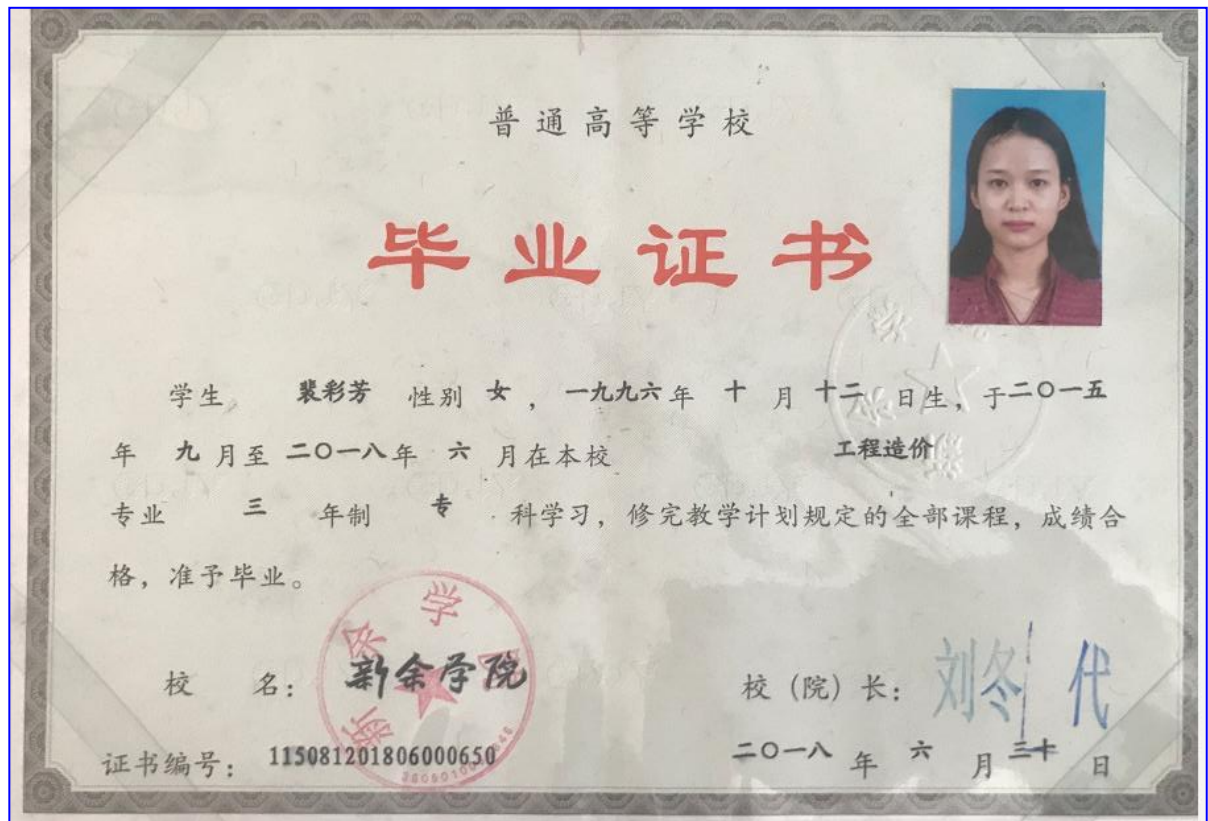 普通高等学校
毕业证书
学生 裴彩芳 性别 女，一九九六年 十 月 十二 日生，于二〇一五
年 九 月至 二〇一八年 六 月在本校 工程造价
专业 三 年制 专 科学习，修完教学计划规定的全部课程，成绩合
格，准予毕业。
校 名：新余学院
校（院）长：刘冬 代
证书编号：115081201806000650
二〇一八 年 六 月 三十 日